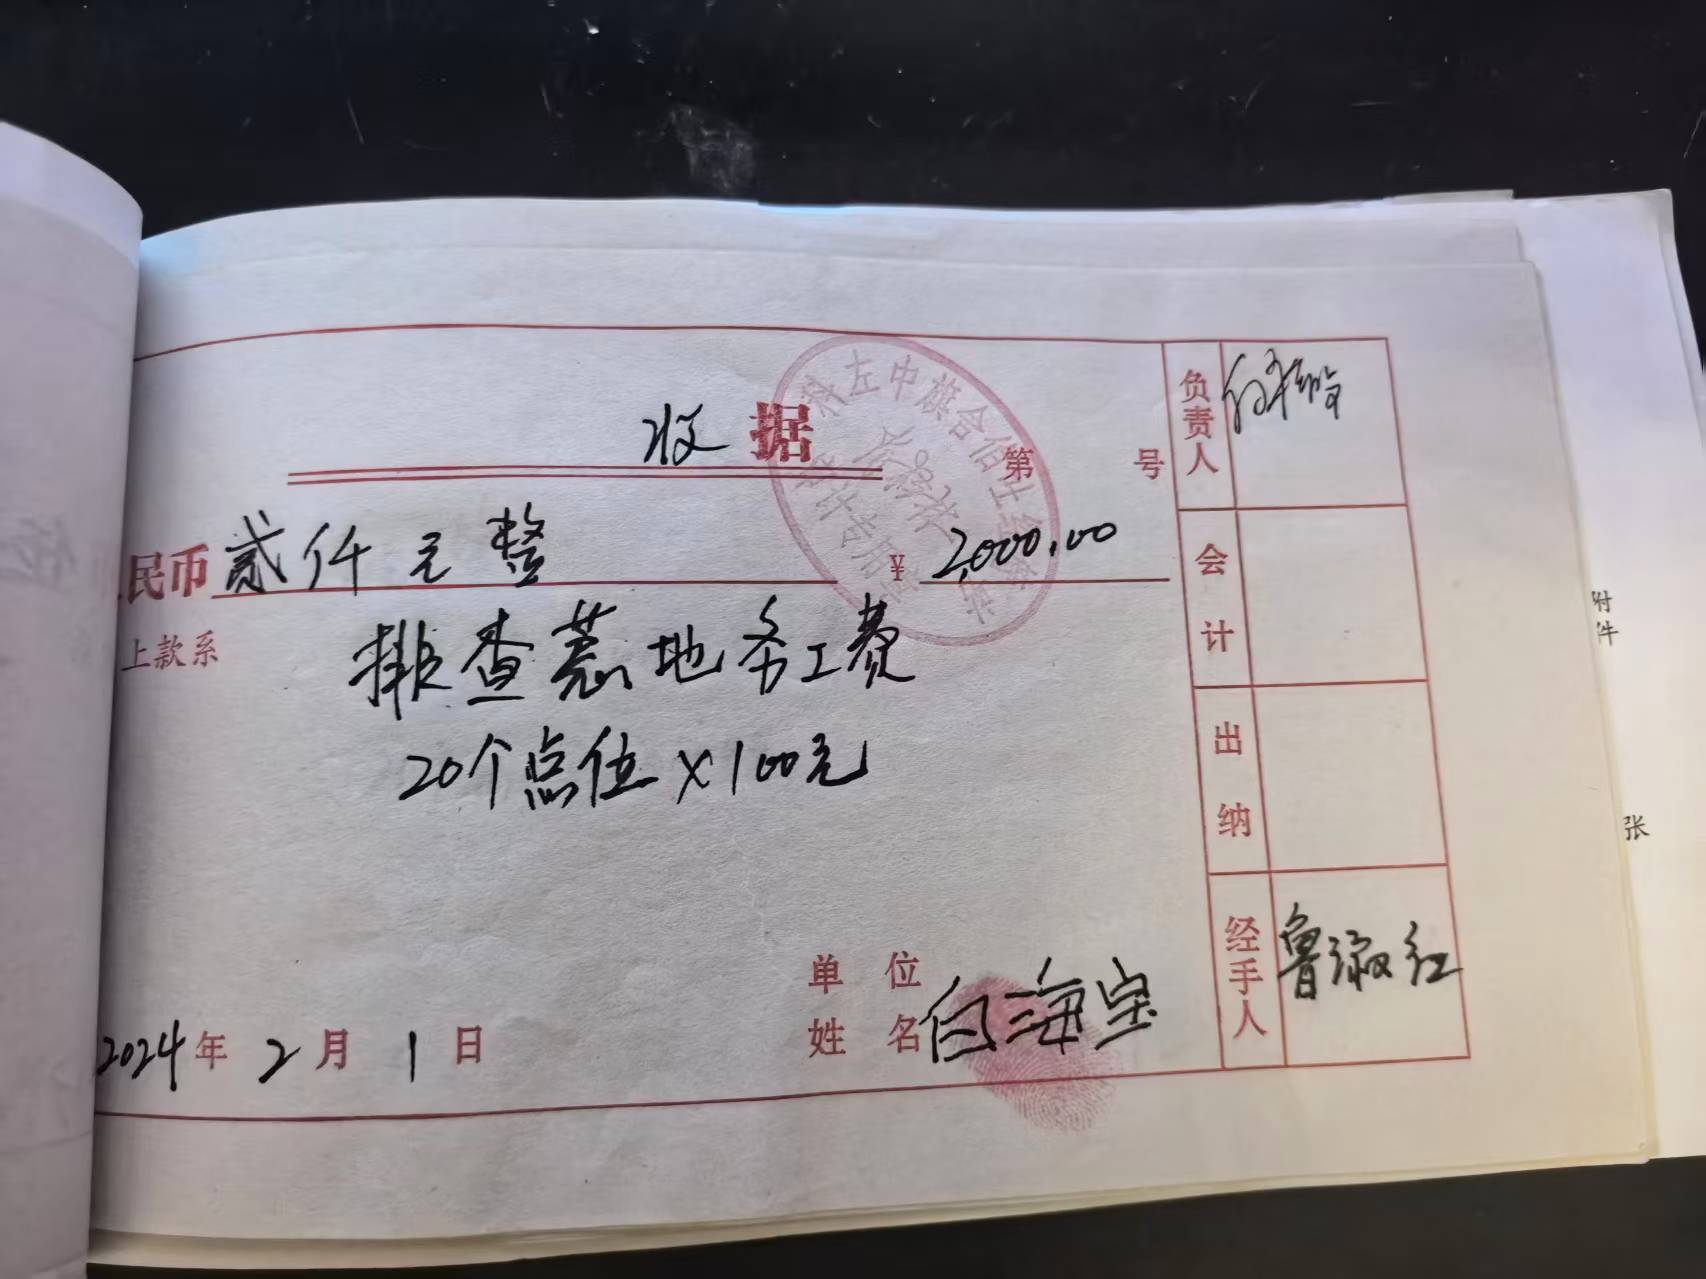 收据
第 号
民币 贰仟元整 ¥ 2,000.00
上款系 排查墓地务工费
20个点位×100元
单位
姓名 白海宝
2024年2月1日
负责人
会计
出纳
经手人 鲁淑红
科左中旗合佰
附件
张